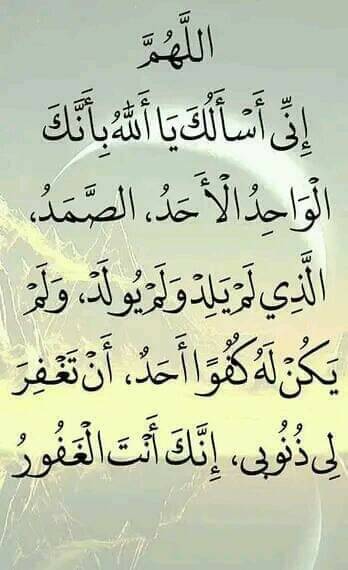 اللَّهُمَّ
إِنِّي أَسْأَلُكَ يَا أَللهُ بِأَنَّكَ
الْوَاحِدُ الْأَحَدُ، الصَّمَدُ،
الَّذِي لَمْ يَلِدْ وَلَمْ يُولَدْ، وَلَمْ
يَكُنْ لَهُ كُفُوًا أَحَدٌ، أَنْ تَغْفِرَ
لِي ذُنُوبِي، إِنَّكَ أَنْتَ الْغَفُورُ